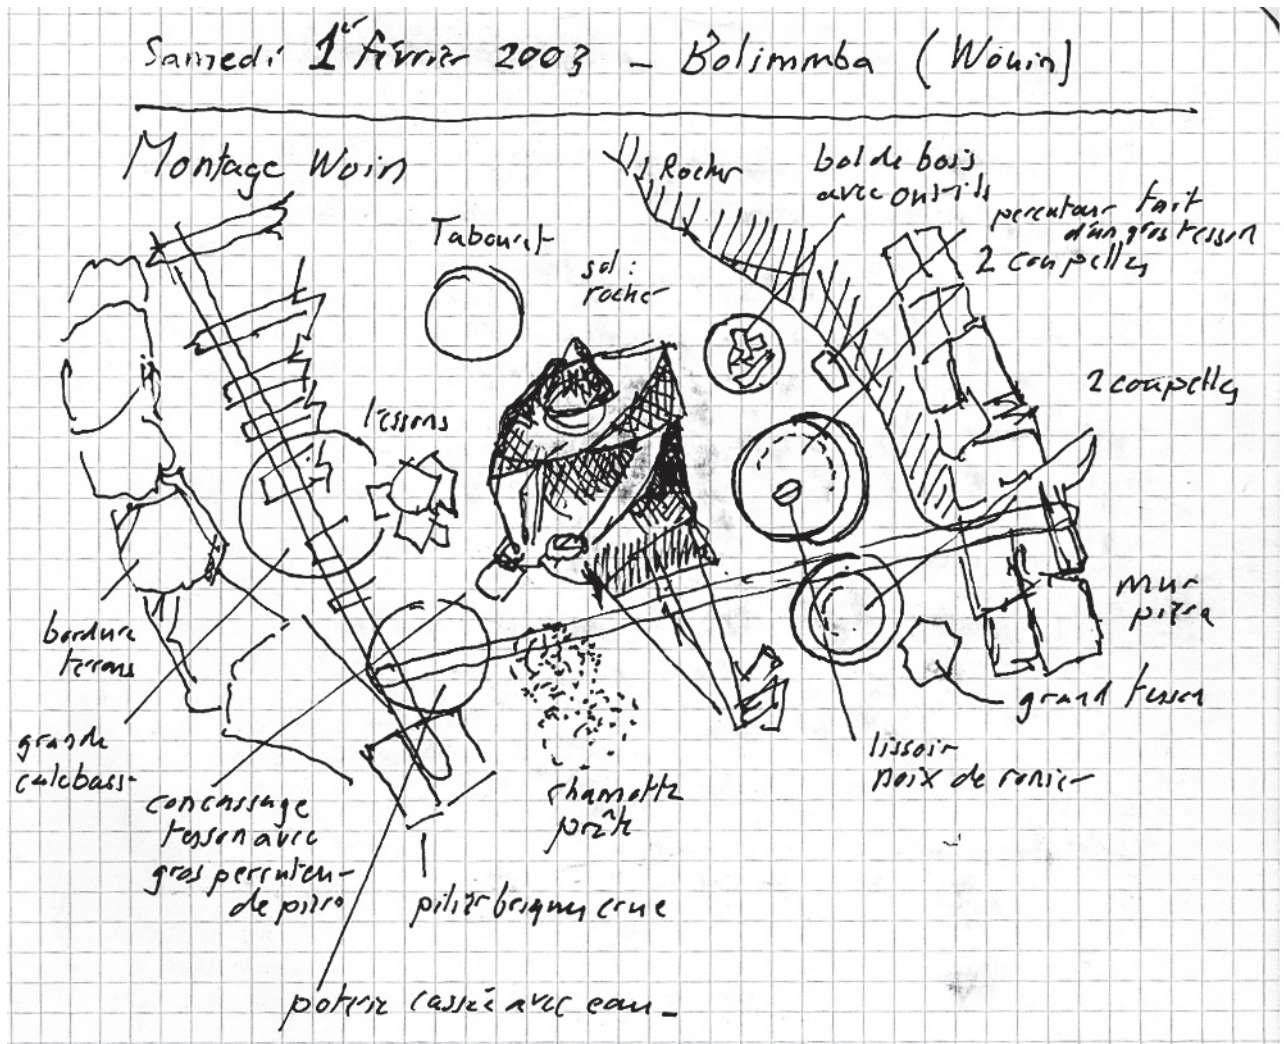 Samedi 1er février 2003 – Bolimmba (Wouin)
Montage Woin
Rocher
bol de bois
avec outils
percuteur fait
d'un gros tesson
2 coupelles
Tabouret
sol :
rocher
2 coupelles
tessons
bordure
terrons
mur
pierre
grand tesson
grande
calebasse
lissoir
noix de ronier
concassage
tesson avec
gros percuteur
de pierre
chamotte
prête
pilier briques crue
poterie cassée avec eau –